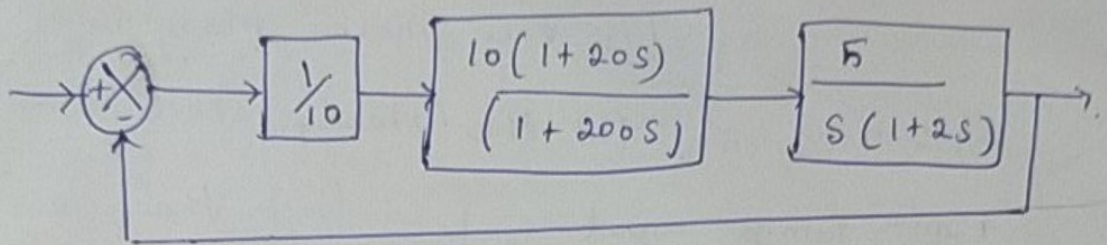 +
-
1/10
10(1+20S)
(1+200S)
5
S(1+2S)